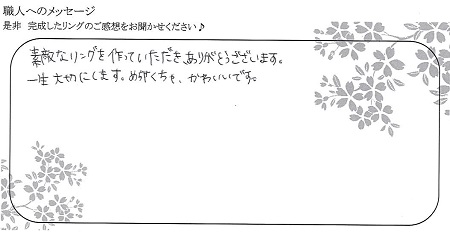 職人へのメッセージ
是非 完成したリングのご感想をお聞かせください♪
素敵なリングを作っていただき、ありがとうございます。
一生大切にします。めちゃくちゃ、かわいいです。